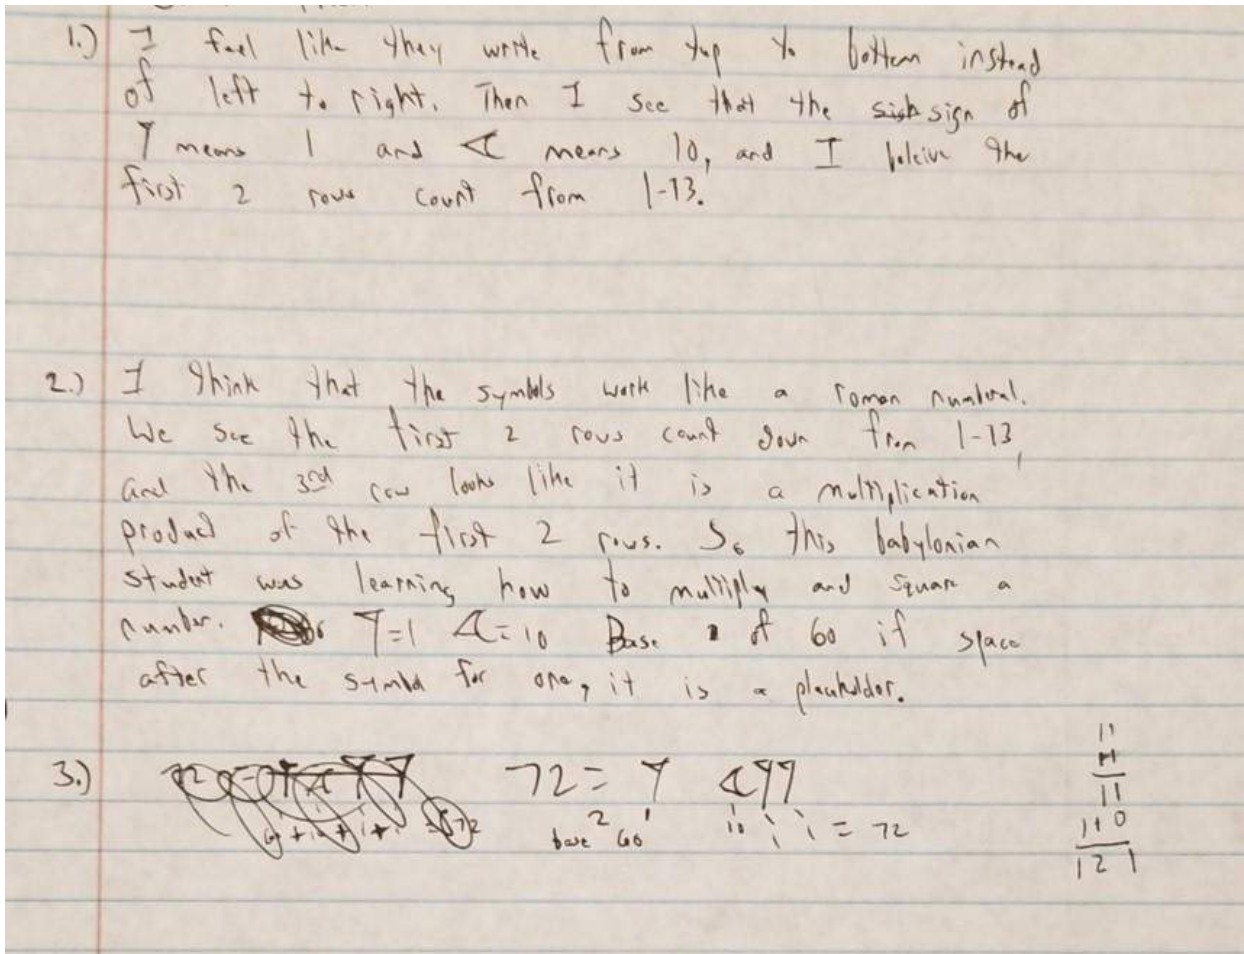 1.) I feel like they write from top to bottom instead
of left to right. Then I see that the sign of
𒁹 means 1 and 𒌋 means 10, and I beleive the
first 2 rows count from 1-13.
2.) I think that the symbols work like a roman numberal.
We see the first 2 rows count down from 1-13,
and the 3rd row looks like it is a multiplication
product of the first 2 rows. So this babylonian
student was learning how to multiply and square a
number. 𒁹=1 𒌋=10 Base of 60 if space
after the symbol for one, it is a placeholder.
3.) 72 = 𒁹 𒌋𒁹𒁹
base 60 10 1 1 = 72
11
11
11
110
121